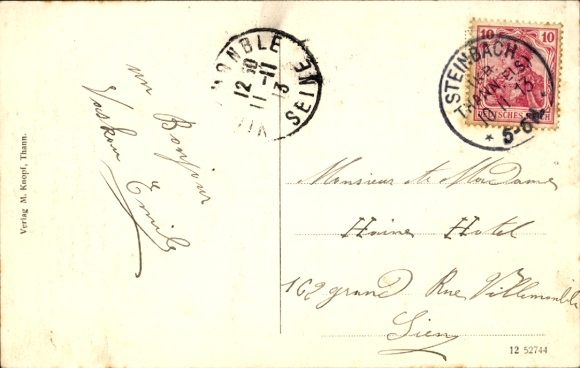 un Bonjour
Emile
Verlag M. Knopf, Thann.
MONBLE
SEINE
12 30
11-11
13
10
10
DEUTSCHES REICH
STEINBACH
THANN
10 11 13
5-6
Monsieur et Madame
Haine Hotel
162 grand Rue Villemomble
12 52744